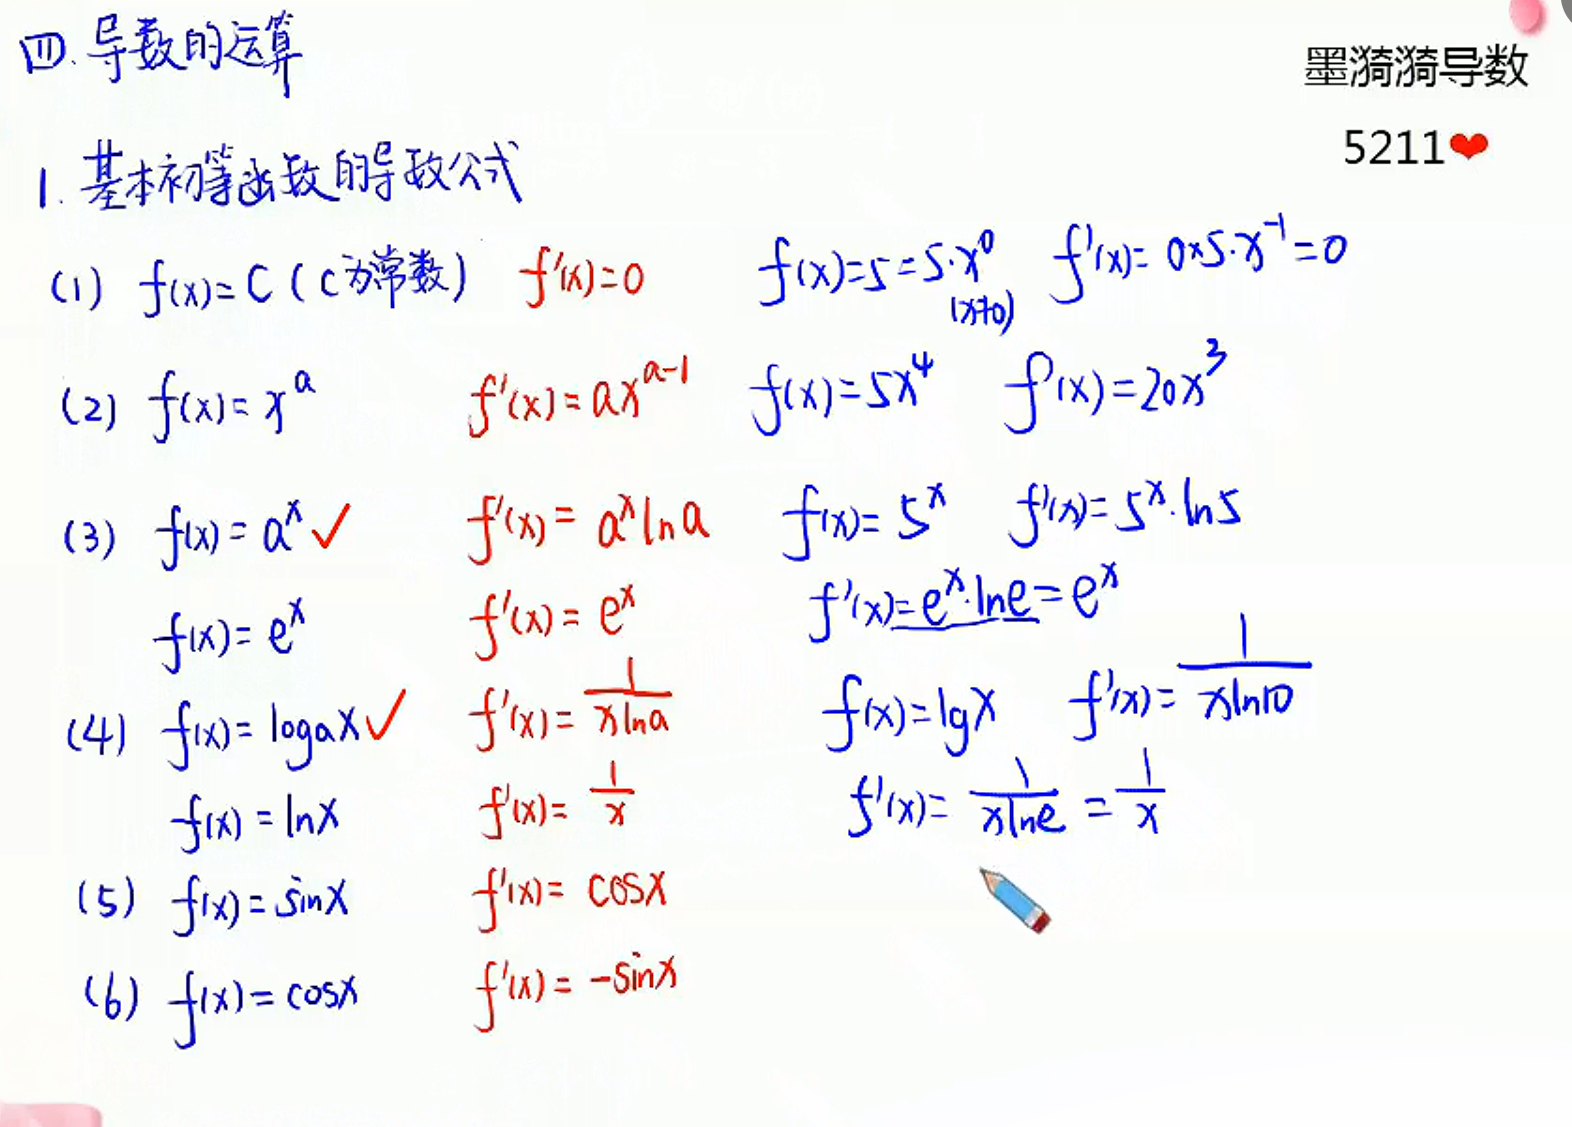 四.导数的运算
墨漪漪导数
5211❤
1.基本初等函数的导数公式
(1) f(x)=C (C为常数) f'(x)=0 f(x)=5=5·x⁰ (x≠0) f'(x)=0×5·x⁻¹=0
(2) f(x)=xᵃ f'(x)=axᵃ⁻¹ f(x)=5x⁴ f'(x)=20x³
(3) f(x)=aˣ✓ f'(x)=aˣlna f(x)=5ˣ f'(x)=5ˣ·ln5
f(x)=eˣ f'(x)=eˣ f'(x)=eˣ·lne=eˣ
(4) f(x)=logax✓ f'(x)=1/(xlna) f(x)=lgx f'(x)=1/(xln10)
f(x)=lnx f'(x)=1/x f'(x)=1/(xlne)=1/x
(5) f(x)=sinx f'(x)=cosx
(6) f(x)=cosx f'(x)=-sinx